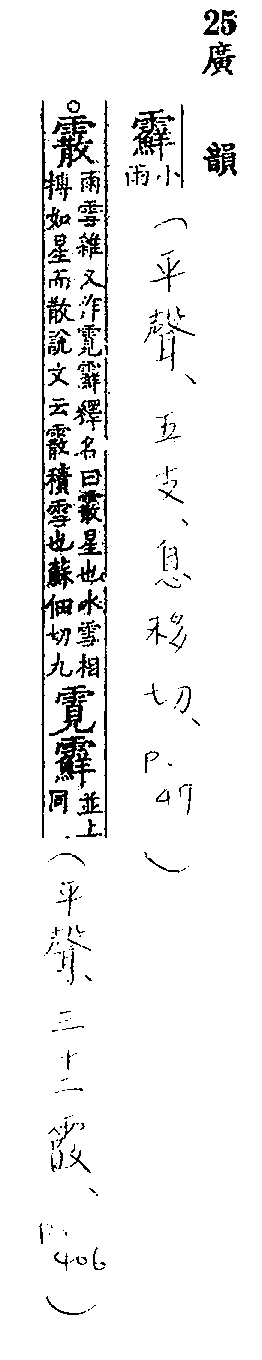 25 廣韻
䨷 小雨 （平聲、五支、息移切、p.47）
○霰 雨雪雜又作䨘䨷釋名曰霰星也水雪相搏如星而散說文云霰積雪也蘇佃切九 䨘䨷 並上同 （平聲、三十二霰、p.406）